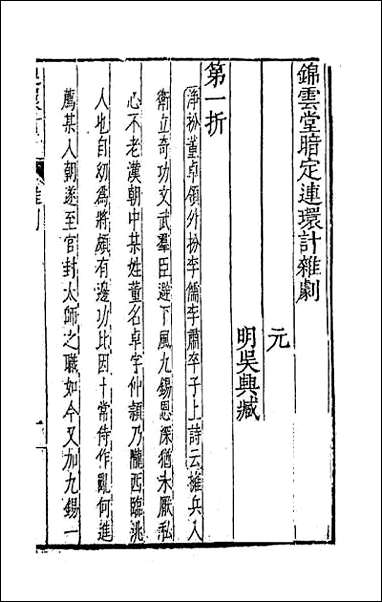 錦雲堂暗定連環計雜劇
元
明吳興臧
第一折
淨扮董卓領外扮李儒李肅卒子上詩云擁兵入
衛立奇功文武羣臣避下風九錫恩深猶未厭私
心不老漢朝中某姓董名卓字仲穎乃隴西臨洮
人也自幼爲將頗有邊功比因十常侍作亂何進
薦某入朝遂至官封太師之職如今又加九錫一